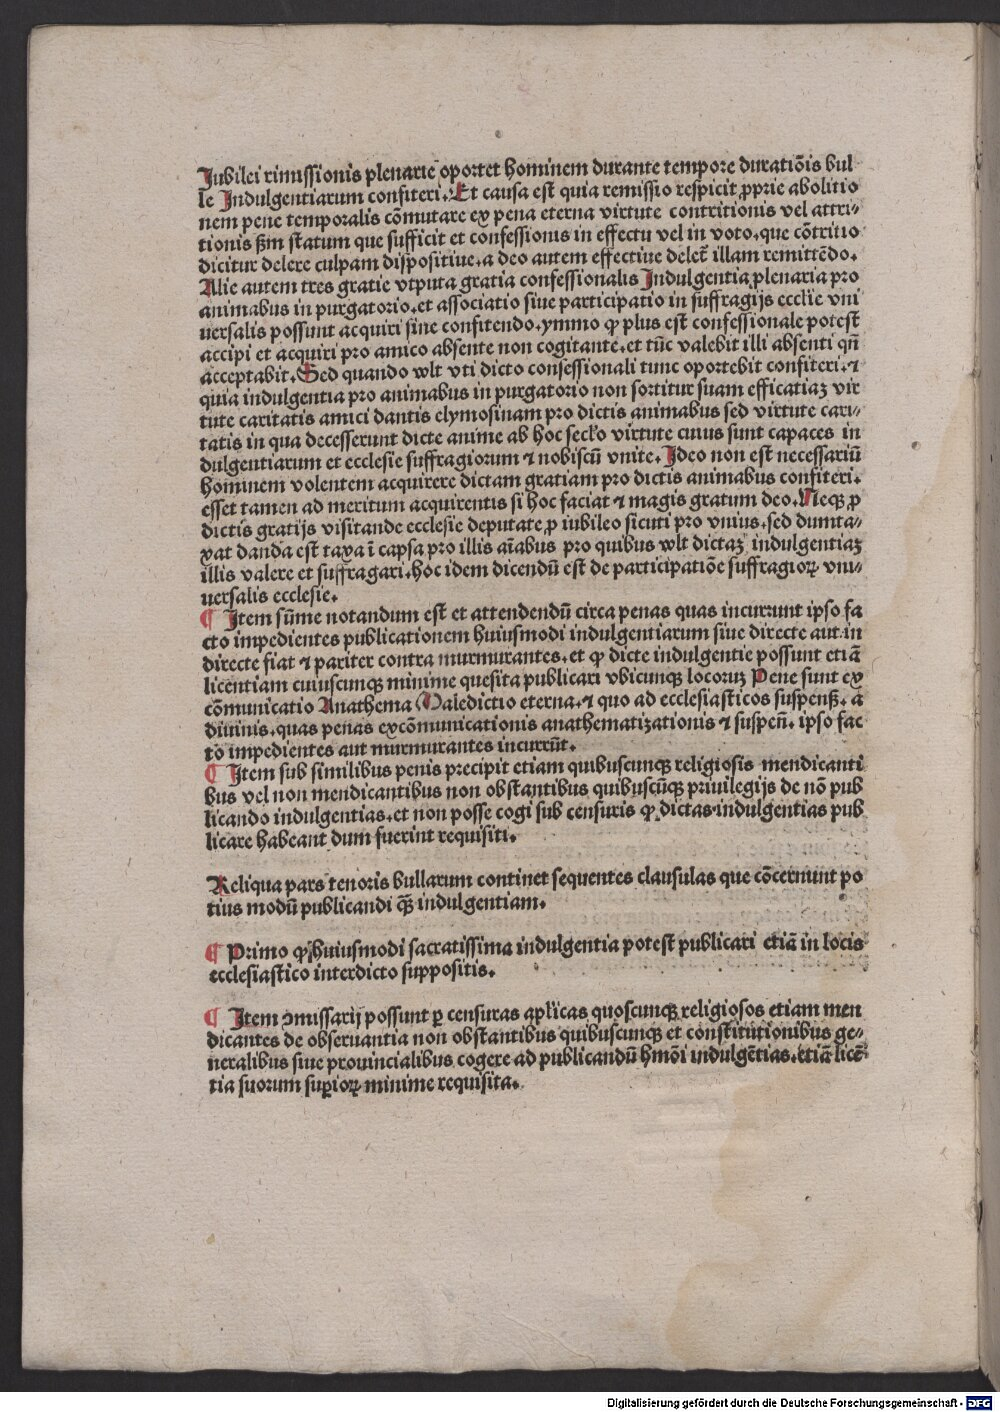 Jubilei rimissionis plenarie oportet hominem durante tempore duratiōis bul
le Indulgentiarum confiteri. Et causa est quia remissio respicit ꝓprie abolitio
nem pene temporalis cōmutare ex pena eterna virtute contritionis vel attri⸗
tionis ẜm statum que sufficit et confessionis in effectu vel in voto.que cōtritio
dicitur delere culpam dispositiue.a deo autem effectiue delet᷑ illam remittēdo.
Alie autem tres gratie vtputa gratia confessionalis Indulgentia plenaria pro
animabus in purgatorio.et associatio siue participatio in suffragijs ecclie vni
uersalis possunt acquiri sine confitendo.ymmo ꝙ plus est confessionale potest
accipi et acquiri pro amico absente non cogitante.et tūc valebit illi absenti qn̄
acceptabit.Sed quando wlt vti dicto confessionali tunc oportebit confiteri.⁊
quia indulgentia pro animabus in purgatorio non sortitur suam efficatiaꝫ vir
tute caritatis amici dantis elymosinam pro dictis animabus sed virtute cari⸗
tatis in qua decesserunt dicte anime ab hoc seclo virtute cuius sunt capaces in
dulgentiarum et ecclesie suffragiorum ⁊ nobiscū vnite. Ideo non est necessariū
hominem volentem acquirere dictam gratiam pro dictis animabus confiteri.
esset tamen ad meritum acquirentis si hoc faciat ⁊ magis gratum deo.Neqꝫ ꝓ
dictis gratijs visitande ecclesie deputate ꝓ iubileo sicuti pro vnius.sed dumta⸗
xat danda est taxa ī capsa pro illis aīabus pro quibus wlt dictaꝫ indulgentiaꝫ
illis valere et suffragari.hoc idem dicendū est de participatiōe suffragioꝝ vni⸗
uersalis ecclesie.
¶ Item sūme notandum est et attendendū circa penas quas incurrunt ipso fa
cto impedientes publicationem huiusmodi indulgentiarum siue directe aut in
directe fiat ⁊ pariter contra murmurantes.et ꝙ dicte indulgentie possunt etiā
licentiam cuiuscunqꝫ minime quesita publicari vbicunqꝫ locoruꝫ Pene sunt ex
cōmunicatio Anathema Maledictio eterna.⁊ quo ad ecclesiasticos suspenß. a
diuinis.quas penas excōmunicationis anathematizationis ⁊ suspen̄. ipso fac
to impedientes aut murmurantes incurrūt.
¶ Item sub similibus penis precipit etiam quibuscunqꝫ religiosis mendicanti
bus vel non mendicantibus non obstantibus quibuscūqꝫ priuilegijs de nō pub
licando indulgentias.et non posse cogi sub censuris ꝙ dictas indulgentias pub
licare habeant dum fuerint requisiti.
Reliqua pars tenoris bullarum continet sequentes clausulas que cōcernunt po
tius modū publicandi qꝫ̄ indulgentiam.
¶ Primo ꝙ huiusmodi sacratissima indulgentia potest publicari etiā in locis
ecclesiastico interdicto suppositis.
¶ Item ↄmissarij possunt ꝑ censuras apl̄icas quoscunqꝫ religiosos etiam men
dicantes de obseruantia non obstantibus quibuscunqꝫ et constitutionibus ge⸗
neralibus siue prouincialibus cogere ad publicandū hmōi indulgētias.etiā licē⸗
tia suorum suꝑioꝝ minime requisita.
Digitalisierung gefördert durch die Deutsche Forschungsgemeinschaft - DFG